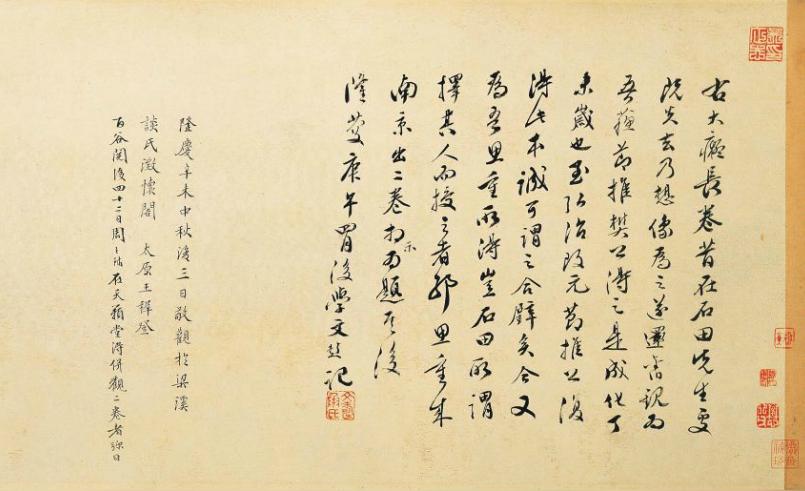 右大癡長卷昔在石田先生處
既失去乃想像為之遂還舊觀為
吾蘇節推樊公得之是成化丁
未歲也至弘治改元節推公復
得此本誠可謂之合璧矣今又
為吾思重所得豈石田所謂
擇其人而授之者耶思重來
南京出二卷相示因題其後
隆慶庚午四月後學文彭記
隆慶辛未中秋後三日敬觀於梁溪
談氏澂懷閣 太原王穉登
百谷閱後四十二日周天球在天籟堂得併觀二卷者彌日